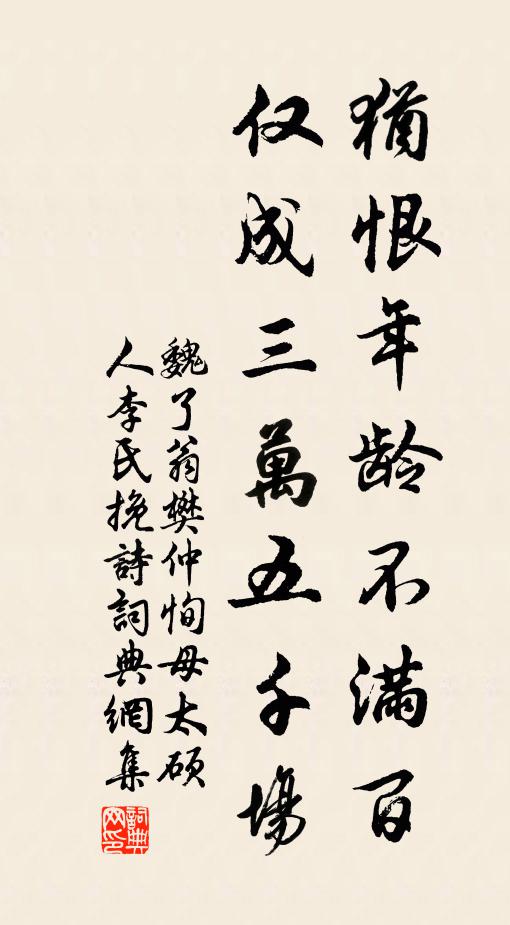 猶恨年龄不滿百
仅成三萬五千場
魏了翁樊仲恂母太硕
人李氏挽詩詞典網集
詞典网印